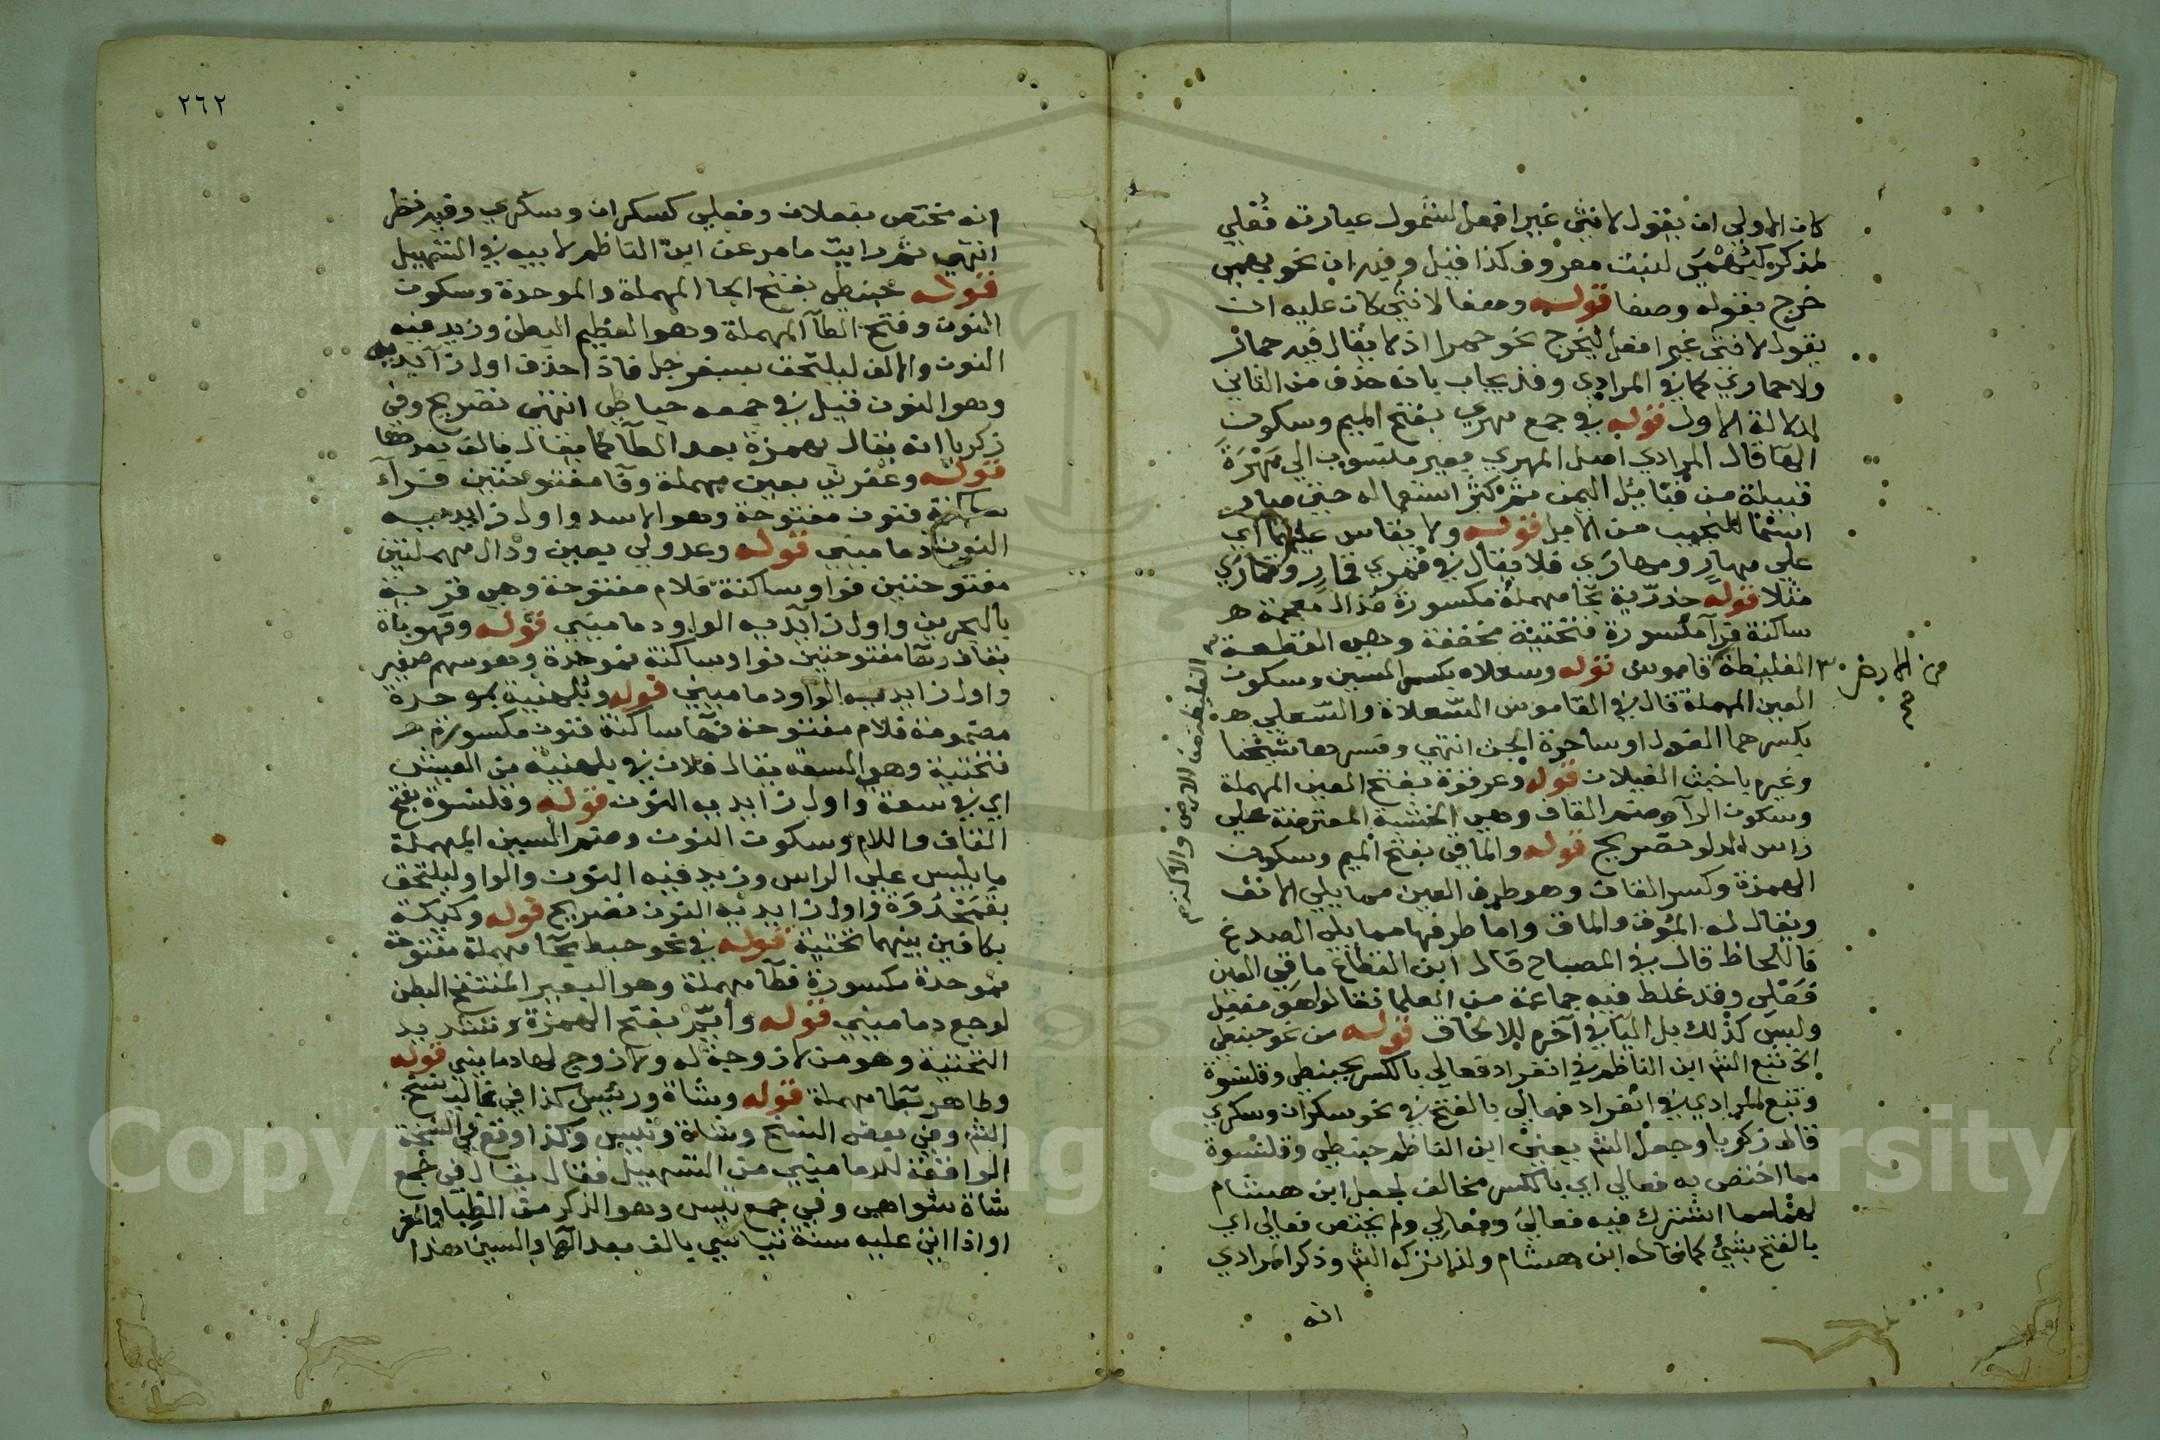 كان الاولي ان يقول لانثي غير افعل لشمول عبارته فُعْلي
لمذكر كبُهْمَي لنبت معروف كذا قيل وفيه ان نحو بهمي
خرج بقوله وصفا قوله وصفا لانثي كان عليه ان
يقول لانثي غير افعل ليخرج نحو حمرا اذ لا يقال فيه حمار
ولا حماري كما في المرادي وقد يجاب بانه حذف من الثاني
لدلالة الاول قوله في جمع مهري بفتح الميم وسكون
الها قال المرادي اصل المهري بعير منسوب الي مَهْرَة
قبيلة من قبايل اليمن ثم كثر استعماله حتي صار
اسما للنجيب من الابل قوله ولا يقاس عليهما اي
علي مهارٍ ومهارَي فلا يقال في قمري قمارٍ وقمارَي
مثلا قوله حذرية بحا مهملة مكسورة فذال معجمة
ساكنة فرآ مكسورة فتحتية مخففة وهي القطعة
الغليظة قاموس قوله وسعلاه بكسر السين وسكون
العين المهملة قال في القاموس السعلاة والسعلي
بكسرهما الغول او ساحرة الجن انتهي وفسرها شيخنا
وغيره باخبث الغيلان قوله وعرقوة بفتح العين المهملة
وسكون الرآ وضم القاف وهي الخشبة المعترضة علي
راس الدلو تصريح قوله والماقي بفتح الميم وسكون
الهمزة وكسر القاف وهو طرف العين مما يلي الانف
ويقال له المؤق والماق واما طرفها مما يلي الصدغ
فاللحاظ قال في المصباح قال ابن القطاع ماقي العين
فَعْلي وقد غلط فيه جماعة من العلما فقالوا هو مفعل
وليس كذلك بل اليا في آخره للالحاق قوله من نحو حبنطي
الخ تبع الشم ابن الناظم في انفراد فعالي بالكسر بحبنطي وقلنسوة
وتبع المرادي في انفراد فعالي بالفتح في نحو سكران وسكري
قال زكريا وجعل الشم يعني ابن الناظم حبنطي وقلنسوة
مما اختص به فعالي اي بالكسر مخالف لجعل ابن هشام
لهما مما اشترك فيه فعالَي وفعالِي ولم يختص فعالي اي
بالفتح بشئ كما قاله ابن هشام ولذا تركه الشم وذكر المرادي
انه
من الارض
صح
٢٦٢
انه مختص بفعلان وفعلي كسكران وسكري وفيه نظر
انتهي ثم رايت مامر عن ابن الناظم لابيه في التسهيل
قوله حبنطي بفتح الحا المهملة والموحدة وسكون
النون وفتح الطآ المهملة وهو العظيم البطن وزيد فيه
النون والالف ليلتحق بسفرجل فاذا حذف اول زآيديه
وهو النون قيل في جمعه حباطي انتهي تصريح وفي
زكريا انه يقال بهمزة بعد الطآ كما يقال بالف بعدها
قوله وعفرني بعين مهملة وفا مفتوحتين فرآء
ساكنة فنون مفتوحة وهو الاسد واول زايديه
النون دماميني قوله وعدولي بعين ودال مهملتين
مفتوحتين فواو ساكنة فلام مفتوحة وهي قرية
بالبحرين واول زآيديه الواو دماميني قوله وقهوباة
بقاف وها مفتوحتين فواو ساكنة فموحدة وهو سهم صغير
واول زايديه الواو دماميني قوله وبُلهنية بموحدة
مضمومة فلام مفتوحة فها ساكنة فنون مكسورة
فتحتية وهو السعه يقال فلان في بلهنية من العيش
اي في سعة واول زايديه النون قوله وقلنسوة بفتح
القاف واللام وسكون النون وضم السين المهملة
ما يلبس علي الراس وزيد فيه النون والواو ليلتحق
بقَمَحْدُوَة واول زايديه النون تصريح قوله وكيكة
بكافين بينهما تحتية قوله في نحو حبط بحا مهملة مفتوحة
فموحدة مكسورة فطآ مهملة وهو البعير المنتفخ البطن
لوجع دماميني قوله وأيّم بفتح الهمزة وتشديد
التحتية وهو من لا زوجة له ولا زوج لها دماميني قوله
وطاهر بطا مهملة قوله وشاة ورئيس كذا في غالب نسخ
الشم وفي بعض النسخ وشاة وتيس وكذا وقع في النسخة
الواقفة للدماميني من التسهيل فقال يقال في جمع
شاة شواهي وفي جمع تيس وهو الذكر من الظبا والمعز
او اذا اتي عليه سنة تياسي بالف بعد اليا والسين هذا